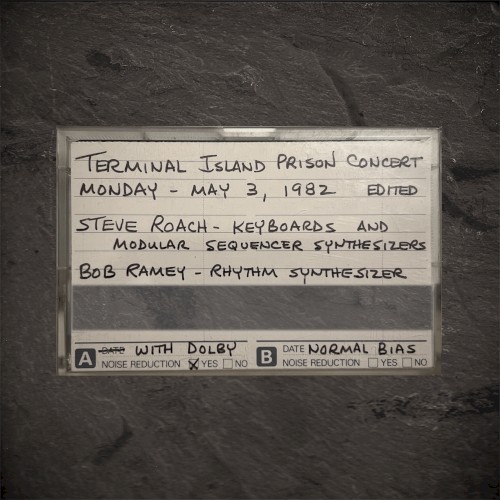 TERMINAL ISLAND PRISON CONCERT
MONDAY - MAY 3, 1982 EDITED
STEVE ROACH - KEYBOARDS AND
MODULAR SEQUENCER SYNTHESIZERS
BOB RAMEY - RHYTHM SYNTHESIZER
A DATE WITH DOLBY
NOISE REDUCTION YES NO
B DATE NORMAL BIAS
NOISE REDUCTION YES NO